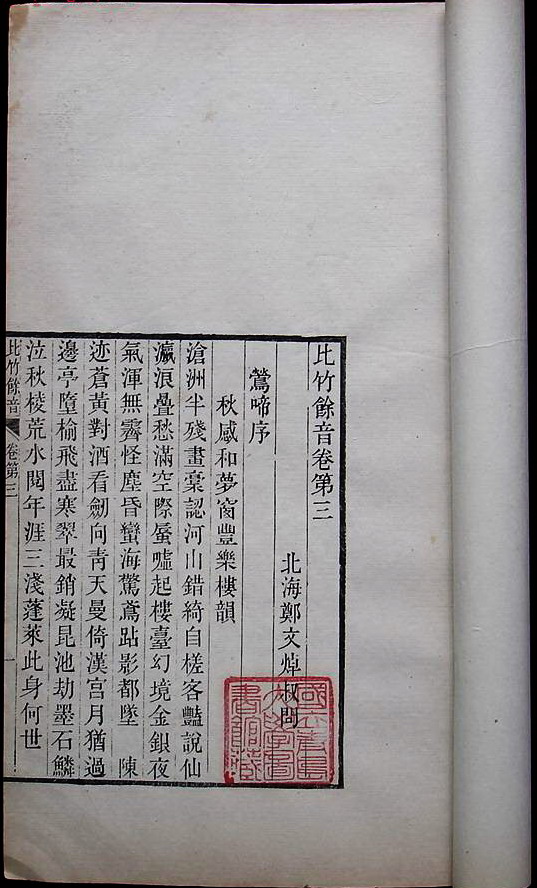 比竹餘音卷第三
北海鄭文焯叔問
鶯啼序
秋感和夢窗豐樂樓韻
滄洲半殘畫稾認河山錯綺自槎客豔說仙
瀛浪疊愁滿空際蜃噓起樓臺幻境金銀夜
氣渾無霽怪塵昏蠻海驚鳶跕影都墜 陳
迹蒼黃對酒看劒向青天曼倚漢宮月猶過
邊亭墮榆飛盡寒翠最銷凝昆池劫墨石鱗
泣秋棱荒水閱年涯三淺蓬萊此身何世
比竹餘音 卷第三 一